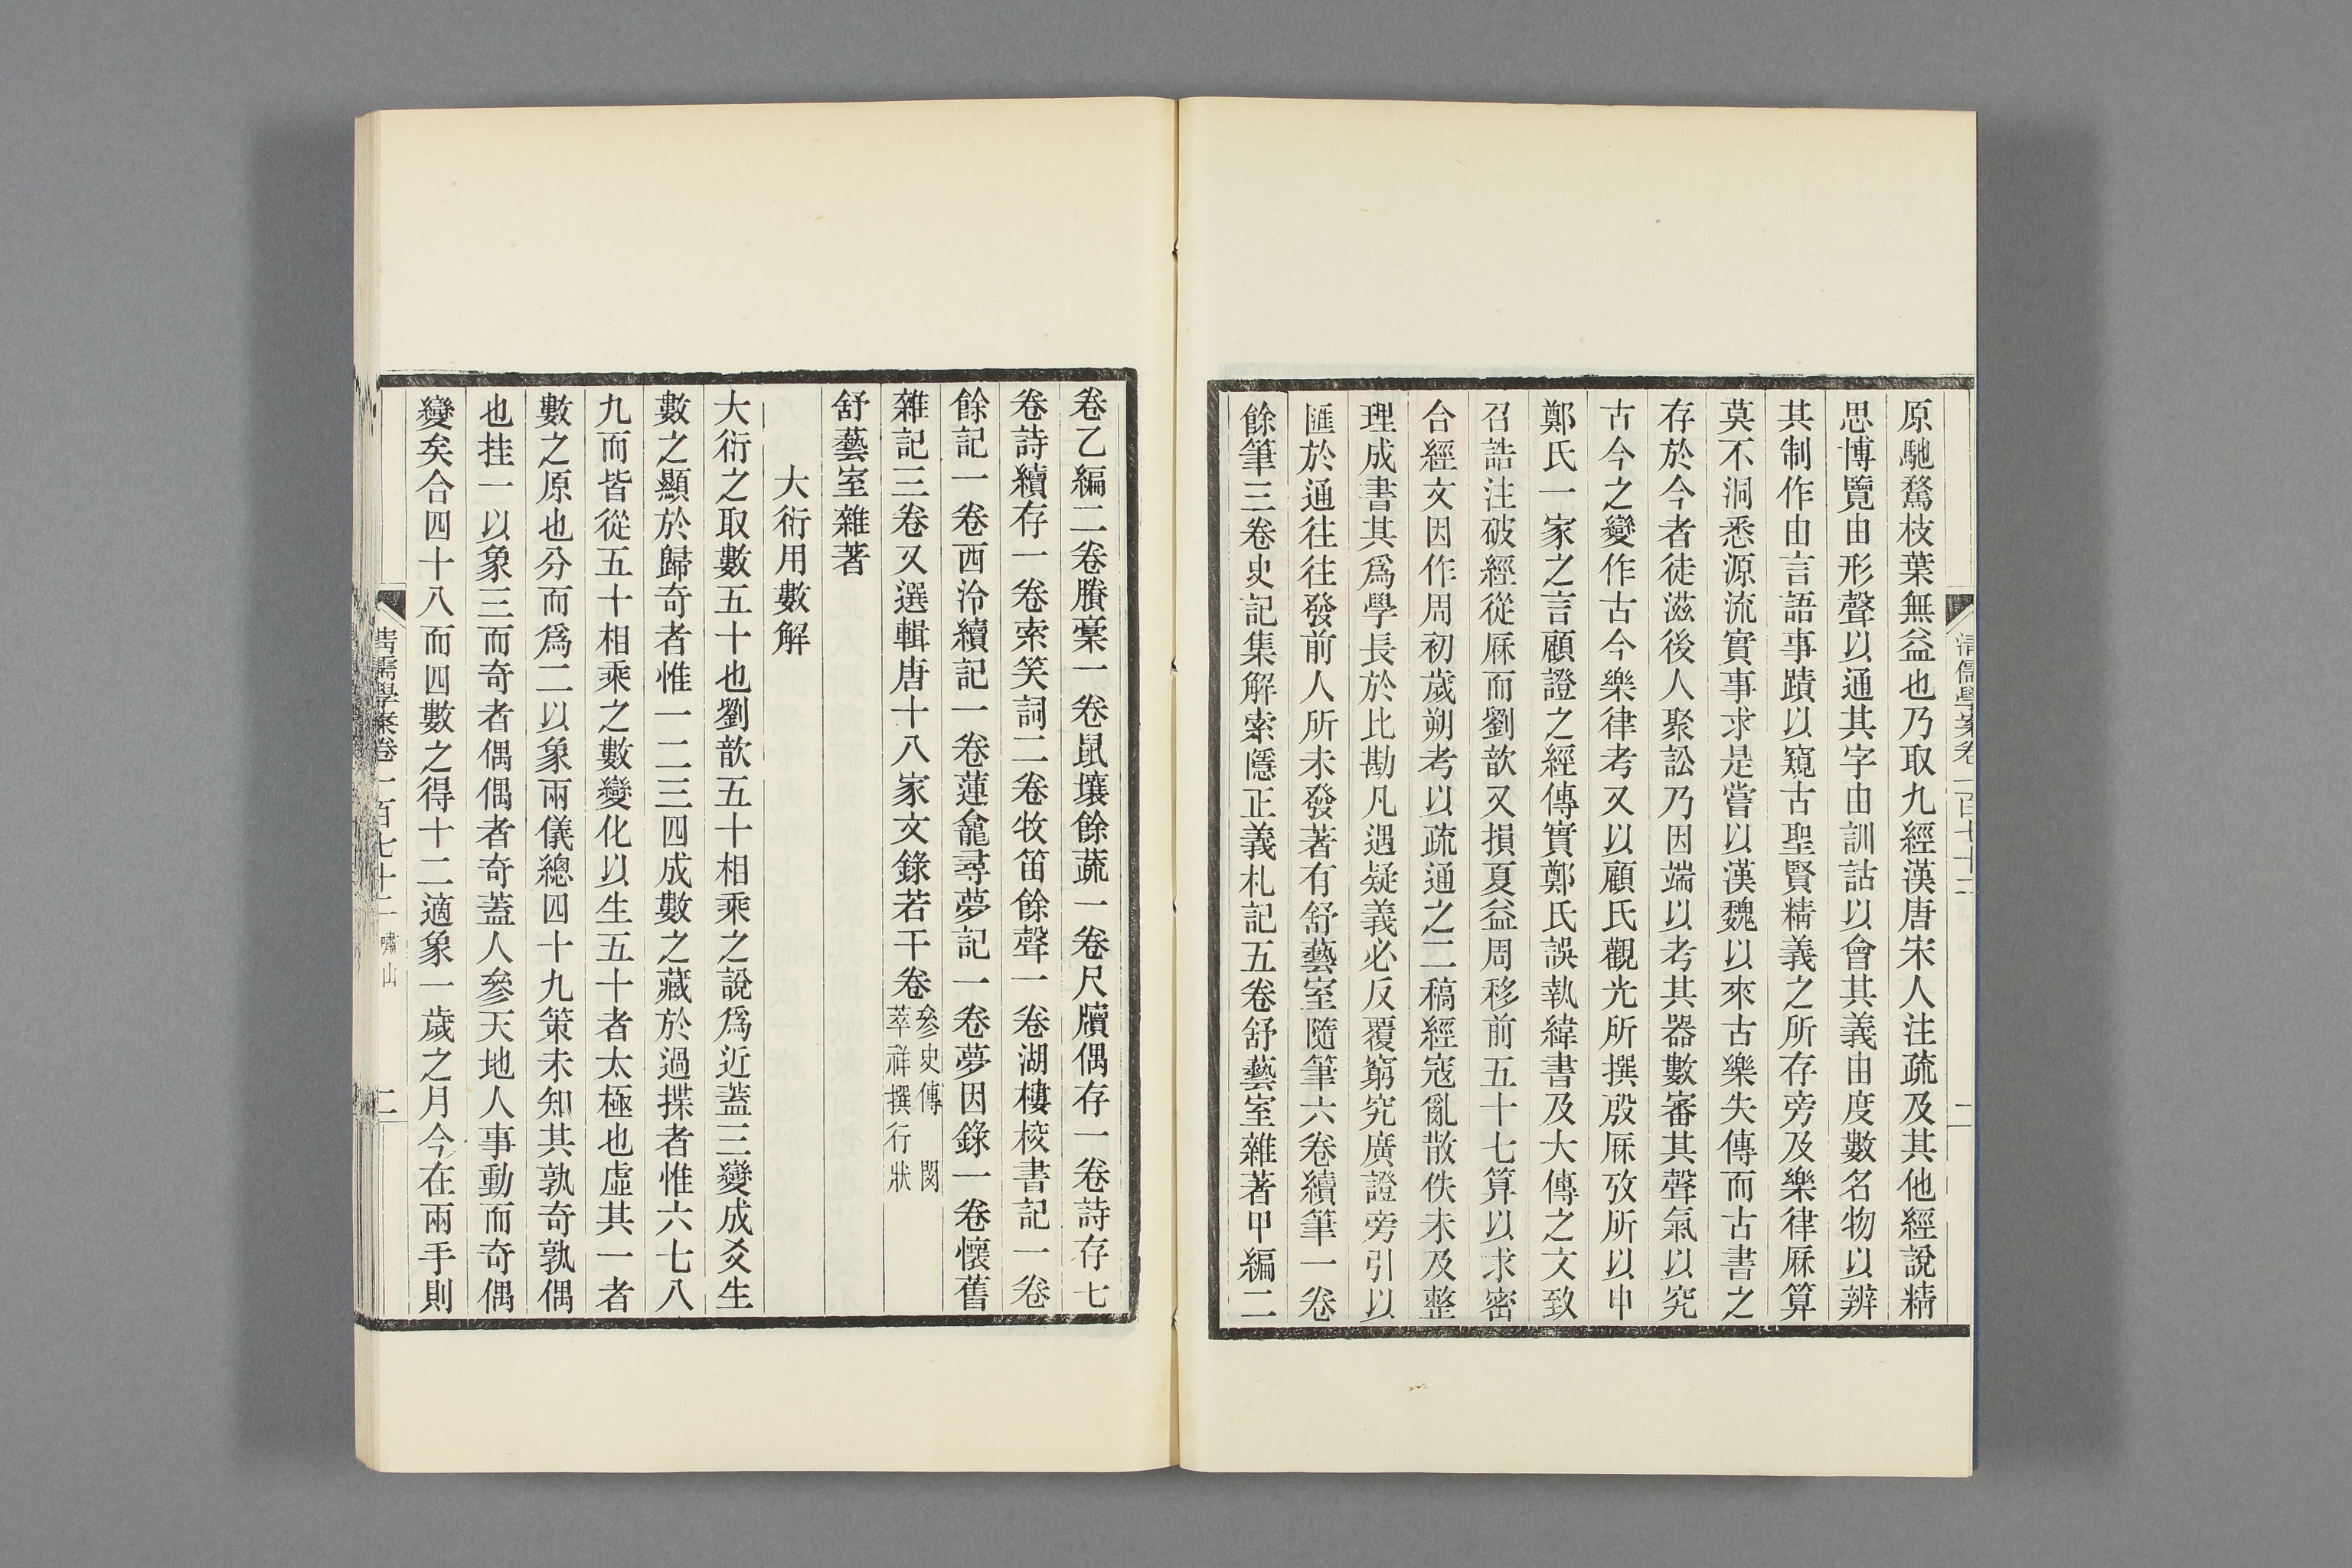 清儒學案卷一百七十二
二
原馳騖枝葉無益也乃取九經漢唐宋人注疏及其他經說精
思博覽由形聲以通其字由訓詁以會其義由度數名物以辨
其制作由言語事蹟以窺古聖賢精義之所存旁及樂律厤算
莫不洞悉源流實事求是嘗以漢魏以來古樂失傳而古書之
存於今者徒滋後人聚訟乃因端以考其器數審其聲氣以究
古今之變作古今樂律考又以顧氏觀光所撰殷厤攷所以申
鄭氏一家之言顧證之經傳實鄭氏誤執緯書及大傳之文致
召誥注破經從厤而劉歆又損夏益周移前五十七算以求密
合經文因作周初歲朔考以疏通之二稿經寇亂散佚未及整
理成書其爲學長於比勘凡遇疑義必反覆窮究廣證旁引以
匯於通往往發前人所未發著有舒藝室隨筆六卷續筆一卷
餘筆三卷史記集解索隱正義札記五卷舒藝室雜著甲編二
卷乙編二卷賸稾一卷鼠壤餘蔬一卷尺牘偶存一卷詩存七
卷詩續存一卷索笑詞二卷牧笛餘聲一卷湖樓校書記一卷
餘記一卷西泠續記一卷蓮龕尋夢記一卷夢因錄一卷懷舊
雜記三卷又選輯唐十八家文錄若干卷參史傳 閔萃祥撰行狀
舒藝室雜著
大衍用數解
大衍之取數五十也劉歆五十相乘之說爲近蓋三變成爻生
數之顯於歸奇者惟一二三四成數之藏於過揲者惟六七八
九而皆從五十相乘之數變化以生五十者太極也虛其一者
數之原也分而爲二以象兩儀總四十九策未知其孰奇孰偶
也挂一以象三而奇者偶偶者奇蓋人參天地人事動而奇偶
變矣合四十八而四數之得十二適象一歲之月今在兩手則
清儒學案卷一百七十二 嘯山
二